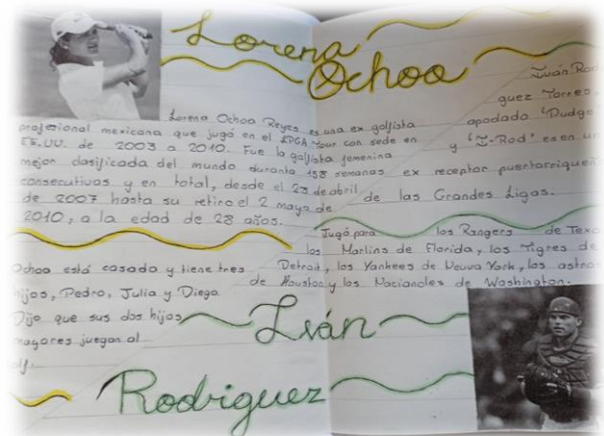 Lorena
Ochoa
Lorena Ochoa Reyes es una ex golfista
profesional mexicana que jugó en el LPGA Tour con sede en
EE.UU. de 2003 a 2010. Fue la golfista femenina
mejor clasificada del mundo durante 158 semanas
consecutivas y en total, desde el 23 de abril
de 2007 hasta su retiro el 2 mayo de
2010, a la edad de 28 años.
Ochoa está casada y tiene tres
hijos, Pedro, Julia y Diego
Dijo que sus dos hijos
mayores juegan al
Iván Rod
guez Torres,
apodado 'Pudge
y 'I-Rod' es en un
ex receptor puertorriqueñ
de las Grandes Ligas.
Jugó para los Rangers de Texa
los Marlins de Florida, los Tigres de
Detroit, los Yankees de Neuva York, los astros
de Houston y los Nacionales de Washington.
Iván
Rodriguez